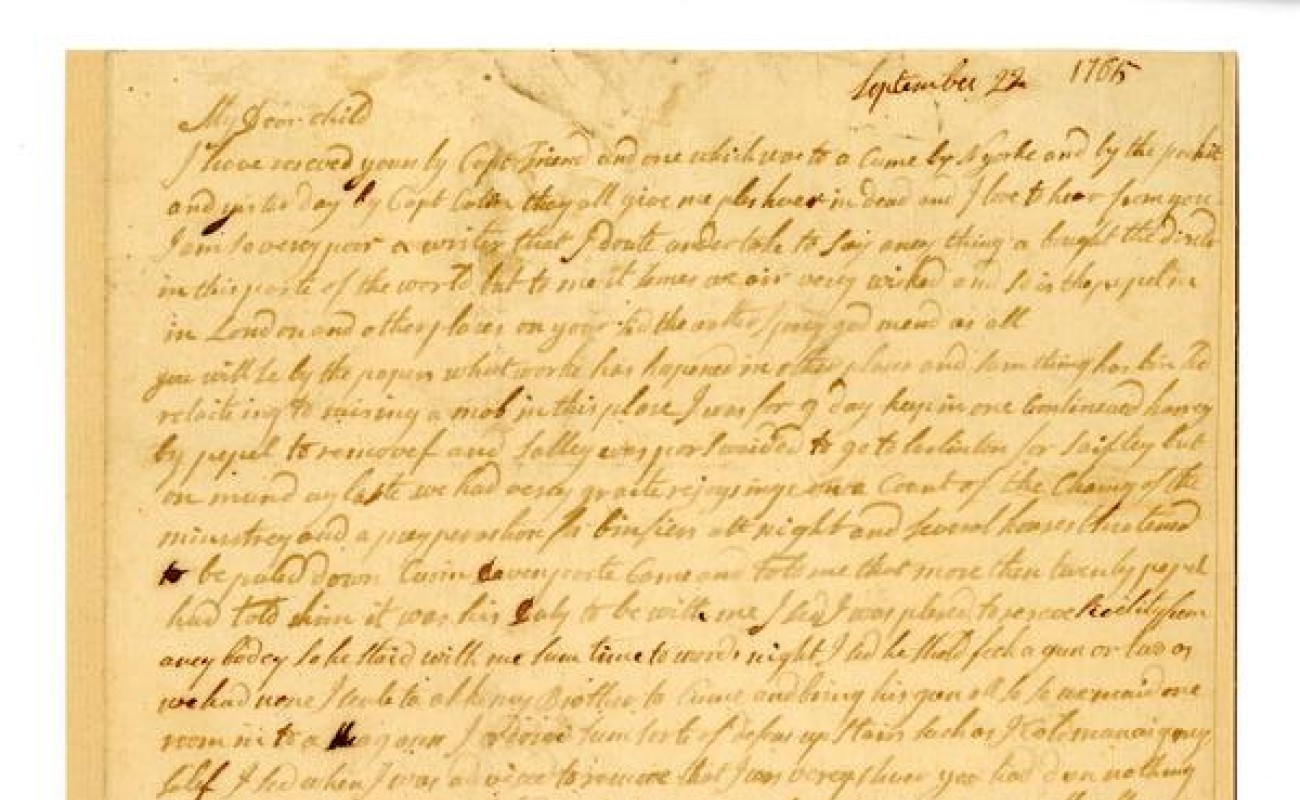 September 22 1765
My Dear child
I have reseved yours by Capt Friend and one which was to a Cume by N yorke and by the packit
and yisterday by Capt they all give me pleshuer in dead and I love to hear from you
I am so verey poor a writer that I donte undertake to say aney thing a bought the
in this parte of the world but to me it semes we air verey wicked and so is the pepel in
in London and other places on your sid the watter I pray god mend us all
you will se by the papers what worke has hapened in other plases and sum thing has bin sed
relaiteing to raising a mob in this plase I was for 9 day keep in one Contineued hurrey
by pepel to removef and Salley was porswaided to go to burlinton for saiftey but
on munday laste we had verey graite rejoysings on a Count of the Chaing of the
minnistrey and a preyperashon for binfiers att night and several houses thretened
to be puled down Cusin Davenporte Come and told me that more then twenty pepel
had told him it was his Duty to be with me I sed I was plesed to reseve Sivility from
aney bodey so he staid with me sum time to words night I sed he shold fech a gun or two as
we had none I sente to aske my Brother to Cume and bring his gun all so so we maid one
room in to a Magazin I ordored sum sorte of defens up Stairs such as I Cold manaig my
self I sed when I was advised to remove that I was verey shuer you had dun nothing